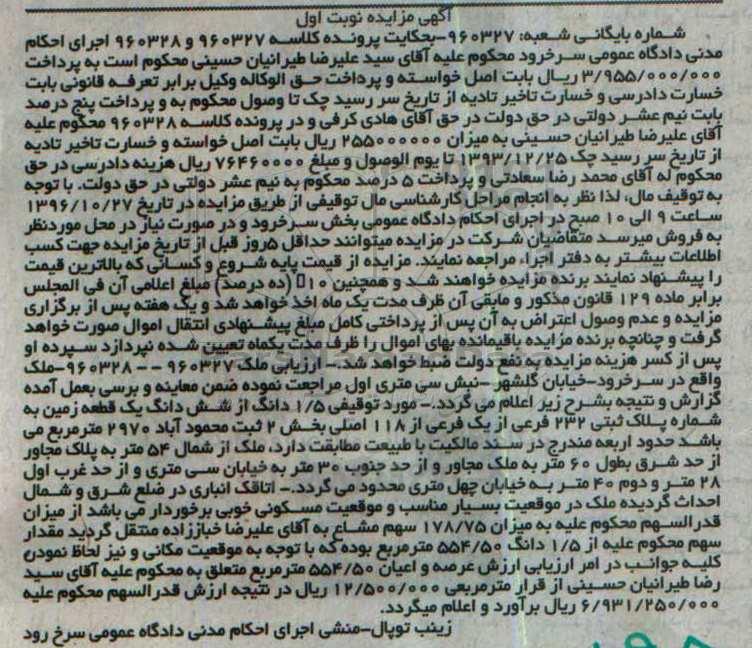 آگهی مزایده نوبت اول
شماره بایگانی شعبه: ۹۶۰۳۲۷-بحکایت پرونده کلاسه ۹۶۰۳۲۷ و ۹۶۰۳۲۸ اجرای احکام
مدنی دادگاه عمومی سرخرود محکوم علیه آقای سید علیرضا طیرانیان حسینی محکوم است به پرداخت
۳/۹۵۵/۰۰۰/۰۰۰ ریال بابت اصل خواسته و پرداخت حق الوکاله وکیل برابر تعرفه قانونی بابت
خسارت دادرسی و خسارت تاخیر تادیه از تاریخ سر رسید چک تا وصول محکوم به و پرداخت پنج درصد
بابت نیم عشر دولتی در حق دولت در حق آقای هادی کرفی و در پرونده کلاسه ۹۶۰۳۲۸ محکوم علیه
آقای علیرضا طیرانیان حسینی به میزان ۲۵۵۰۰۰۰۰۰۰ ریال بابت اصل خواسته و خسارت تاخیر تادیه
از تاریخ سر رسید چک ۱۳۹۳/۱۲/۲۵ تا یوم الوصول و مبلغ ۷۶۴۶۰۰۰۰ ریال هزینه دادرسی در حق
محکوم له آقای محمد رضا سعادتی و پرداخت ۵ درصد محکوم به نیم عشر دولتی در حق دولت. با توجه
به توقیف مال، لذا نظر به انجام مراحل کارشناسی مال توقیفی از طریق مزایده در تاریخ ۱۳۹۶/۱۰/۲۷
ساعت ۹ الی ۱۰ صبح در اجرای احکام دادگاه عمومی بخش سرخرود و در صورت نیاز در محل موردنظر
به فروش میرسد متقاضیان شرکت در مزایده میتوانند حداقل ۵روز قبل از تاریخ مزایده جهت کسب
اطلاعات بیشتر به دفتر اجراء مراجعه نمایند. مزایده از قیمت پایه شروع و کسانی که بالاترین قیمت
را پیشنهاد نمایند برنده مزایده خواهند شد و همچنین ۱۰ (ده درصد) مبلغ اعلامی آن فی المجلس
برابر ماده ۱۲۹ قانون مذکور و مابقی آن ظرف مدت یک ماه اخذ خواهد شد و یک هفته پس از برگزاری
مزایده و عدم وصول اعتراض به آن پس از پرداختی کامل مبلغ پیشنهادی انتقال اموال صورت خواهد
گرفت و چنانچه برنده مزایده باقیمانده بهای اموال را ظرف مدت یکماه تعیین شده نپردازد سپرده او
پس از کسر هزینه مزایده به نفع دولت ضبط خواهد شد.- ارزیابی ملک ۹۶۰۳۲۷ - - ۹۶۰۳۲۸-ملک
واقع در سرخرود-خیابان گلشهر -نبش سی متری اول مراجعت نموده ضمن معاینه و برسی بعمل آمده
گزارش و نتیجه بشرح زیر اعلام می گردد.- مورد توقیفی ۱/۵ دانگ از شش دانگ یک قطعه زمین به
شماره پلاک ثبتی ۲۳۲ فرعی از یک فرعی از ۱۱۸ اصلی بخش ۲ ثبت محمود آباد ۲۹۷۰ مترمربع می
باشد حدود اربعه مندرج در سند مالکیت با طبیعت مطابقت دارد، ملک از شمال ۵۴ متر به پلاک مجاور
از حد شرق بطول ۶۰ متر به ملک مجاور و از حد جنوب ۳۰ متر به خیابان سی متری و از حد غرب اول
۲۸ متر و دوم ۴۰ متر به خیابان چهل متری محدود می گردد.- اتاقک انباری در ضلع شرق و شمال
احداث گردیده ملک در موقعیت بسیار مناسب و موقعیت مسکونی خوبی برخوردار می باشد از میزان
قدرالسهم محکوم علیه به میزان ۱۷۸/۷۵ سهم مشاع به آقای علیرضا خباززاده منتقل گردید مقدار
سهم محکوم علیه از ۱/۵ دانگ ۵۵۴/۵۰ مترمربع بوده که با توجه به موقعیت مکانی و نیز لحاظ نمودن
کلیه جوانب در امر ارزیابی ارزش عرصه و اعیان ۵۵۴/۵۰ مترمربع متعلق به محکوم علیه آقای سید
رضا طیرانیان حسینی از قرار مترمربعی ۱۲/۵۰۰/۰۰۰ ریال در نتیجه ارزش قدرالسهم محکوم علیه
۶/۹۳۱/۲۵۰/۰۰۰ ریال برآورد و اعلام میگردد.
زینب توپال-منشی اجرای احکام مدنی دادگاه عمومی سرخ رود